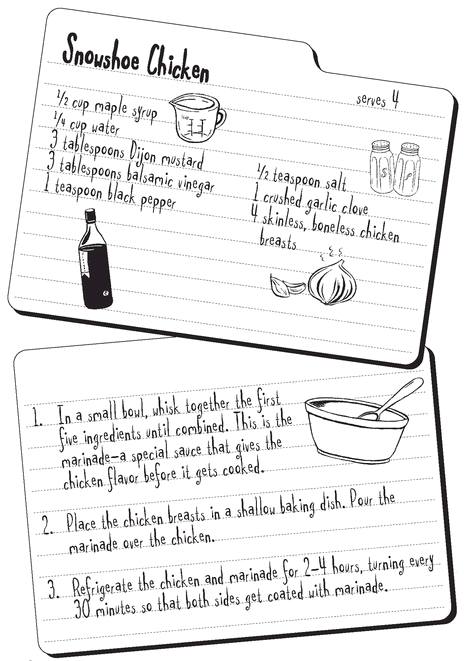 Snowshoe Chicken
serves 4
1/2 cup maple syrup
1/4 cup water
3 tablespoons Dijon mustard
3 tablespoons balsamic vinegar
1 teaspoon black pepper
1/2 teaspoon salt
1 crushed garlic clove
4 skinless, boneless chicken
breasts
S P
1. In a small bowl, whisk together the first
five ingredients until combined. This is the
marinade–a special sauce that gives the
chicken flavor before it gets cooked.
2. Place the chicken breasts in a shallow baking dish. Pour the
marinade over the chicken.
3. Refrigerate the chicken and marinade for 2–4 hours, turning every
30 minutes so that both sides get coated with marinade.